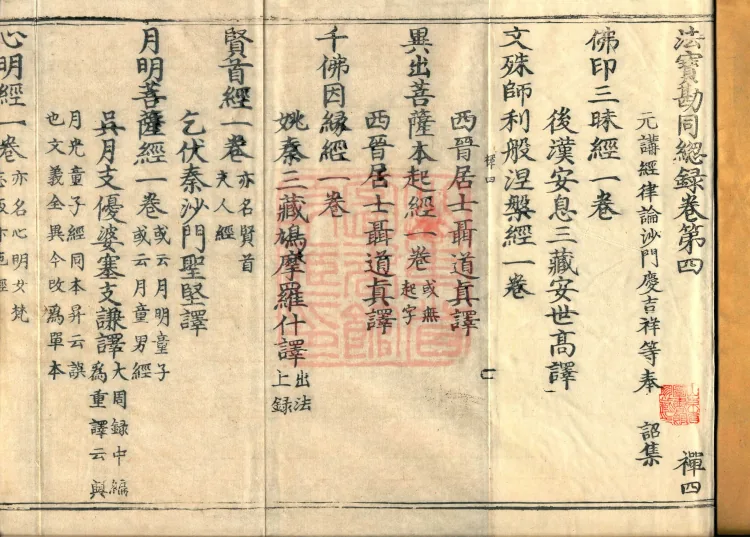 法寶勘同總録卷第四 禪四
元講經律論沙門慶吉祥等奉 詔集
佛印三昧經一卷
後漢安息三藏安世高譯
文殊師利般涅槃經一卷
禪四
西晉居士聶道真譯
異出菩薩本起經一卷 或無
起字
西晉居士聶道真譯
千佛因緣經一卷
姚秦三藏鳩摩羅什譯 出法
上録
賢首經一卷 亦名賢首
夫人經
乞伏秦沙門聖堅譯
月明菩薩經一卷 或云月明童子
或云月童男經
吳月支優婆塞支謙譯 大周録中編
為重譯云與
月光童子經同本昇云誤
也文義全異今改為單本
心明經一卷 亦名心明女梵